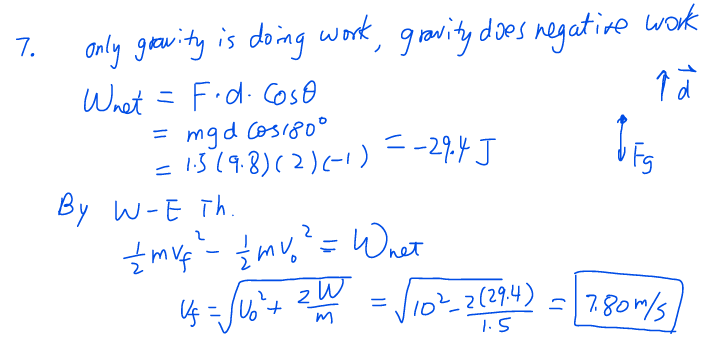 7. only gravity is doing work, gravity does negative work
Wnet = F·d·Cosθ
↑ d⃗
= mgd cos180°
= 1.5(9.8)(2)(-1) = -29.4 J
↓ Fg
By W-E Th.
½mvf² - ½mv₀² = Wnet
Vf = √(V₀² + 2W/m) = √(10² - 2(29.4)/1.5) = 7.80 m/s